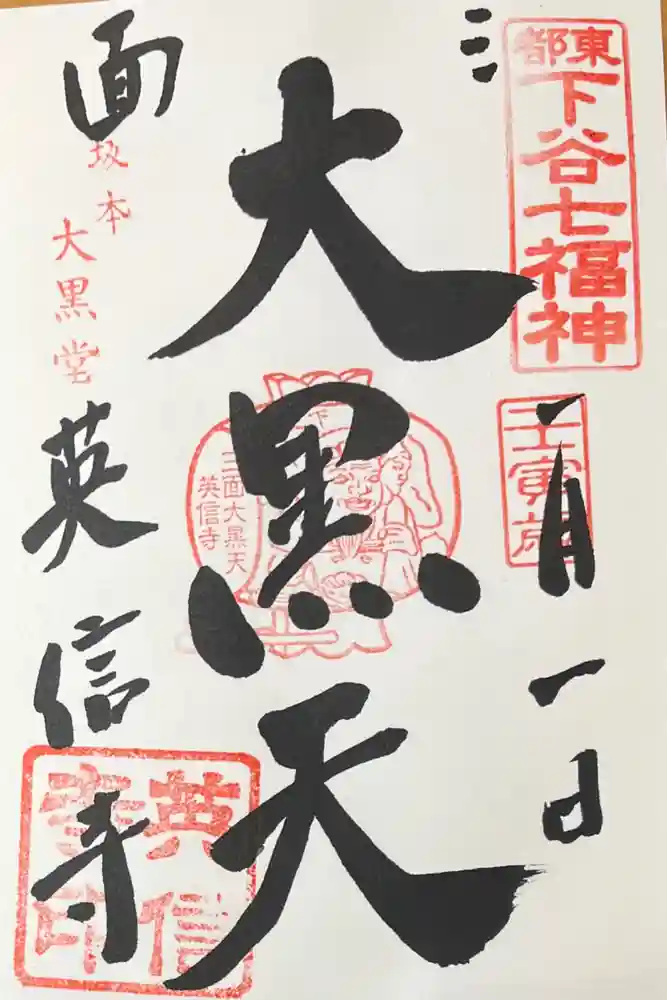 東都
下谷七福神
壬寅歳
三
一月一日
大黒天
三面大黒天
英信寺
面
坂本
大黒堂
英信寺
英信
寺印